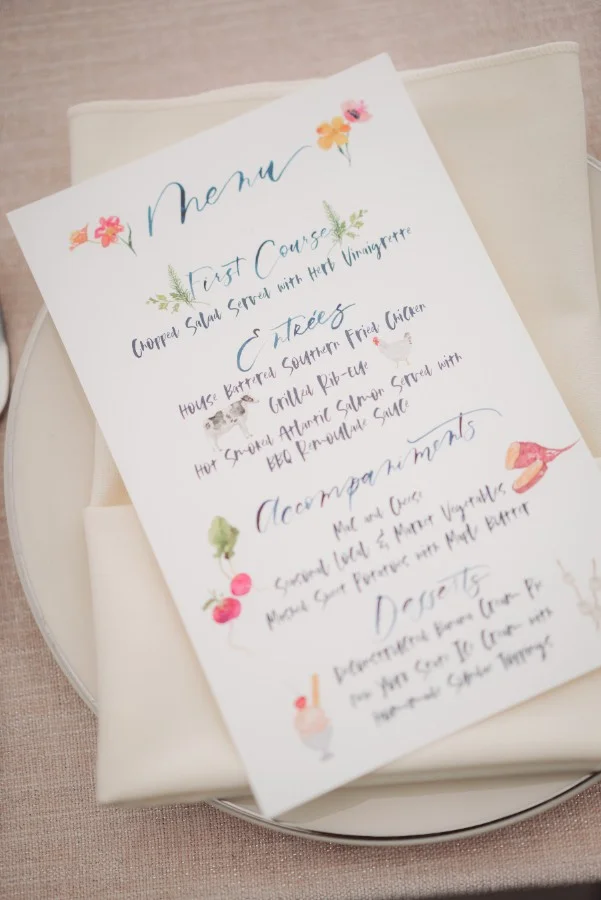 Menu
First Course
Chopped Salad Served with Herb Vinaigrette
Entrées
House Battered Southern Fried Chicken
Grilled Rib-Eye
Hot Smoked Atlantic Salmon Served with
BBQ Remoulade Sauce
Accompaniments
Mac and Cheese
Seasonal Local & Market Vegetables
Mashed Sweet Potatoes with Maple Butter
Desserts
Deconstructed Banana Cream
Ice Cream with
Homemade Toppings